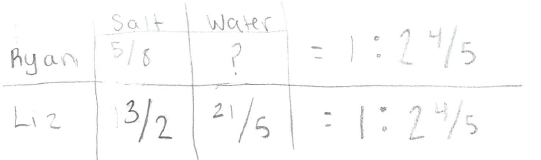 Salt Water
Ryan 5/8 ? = 1 : 2 4/5
Liz 3/2 21/5 = 1 : 2 4/5